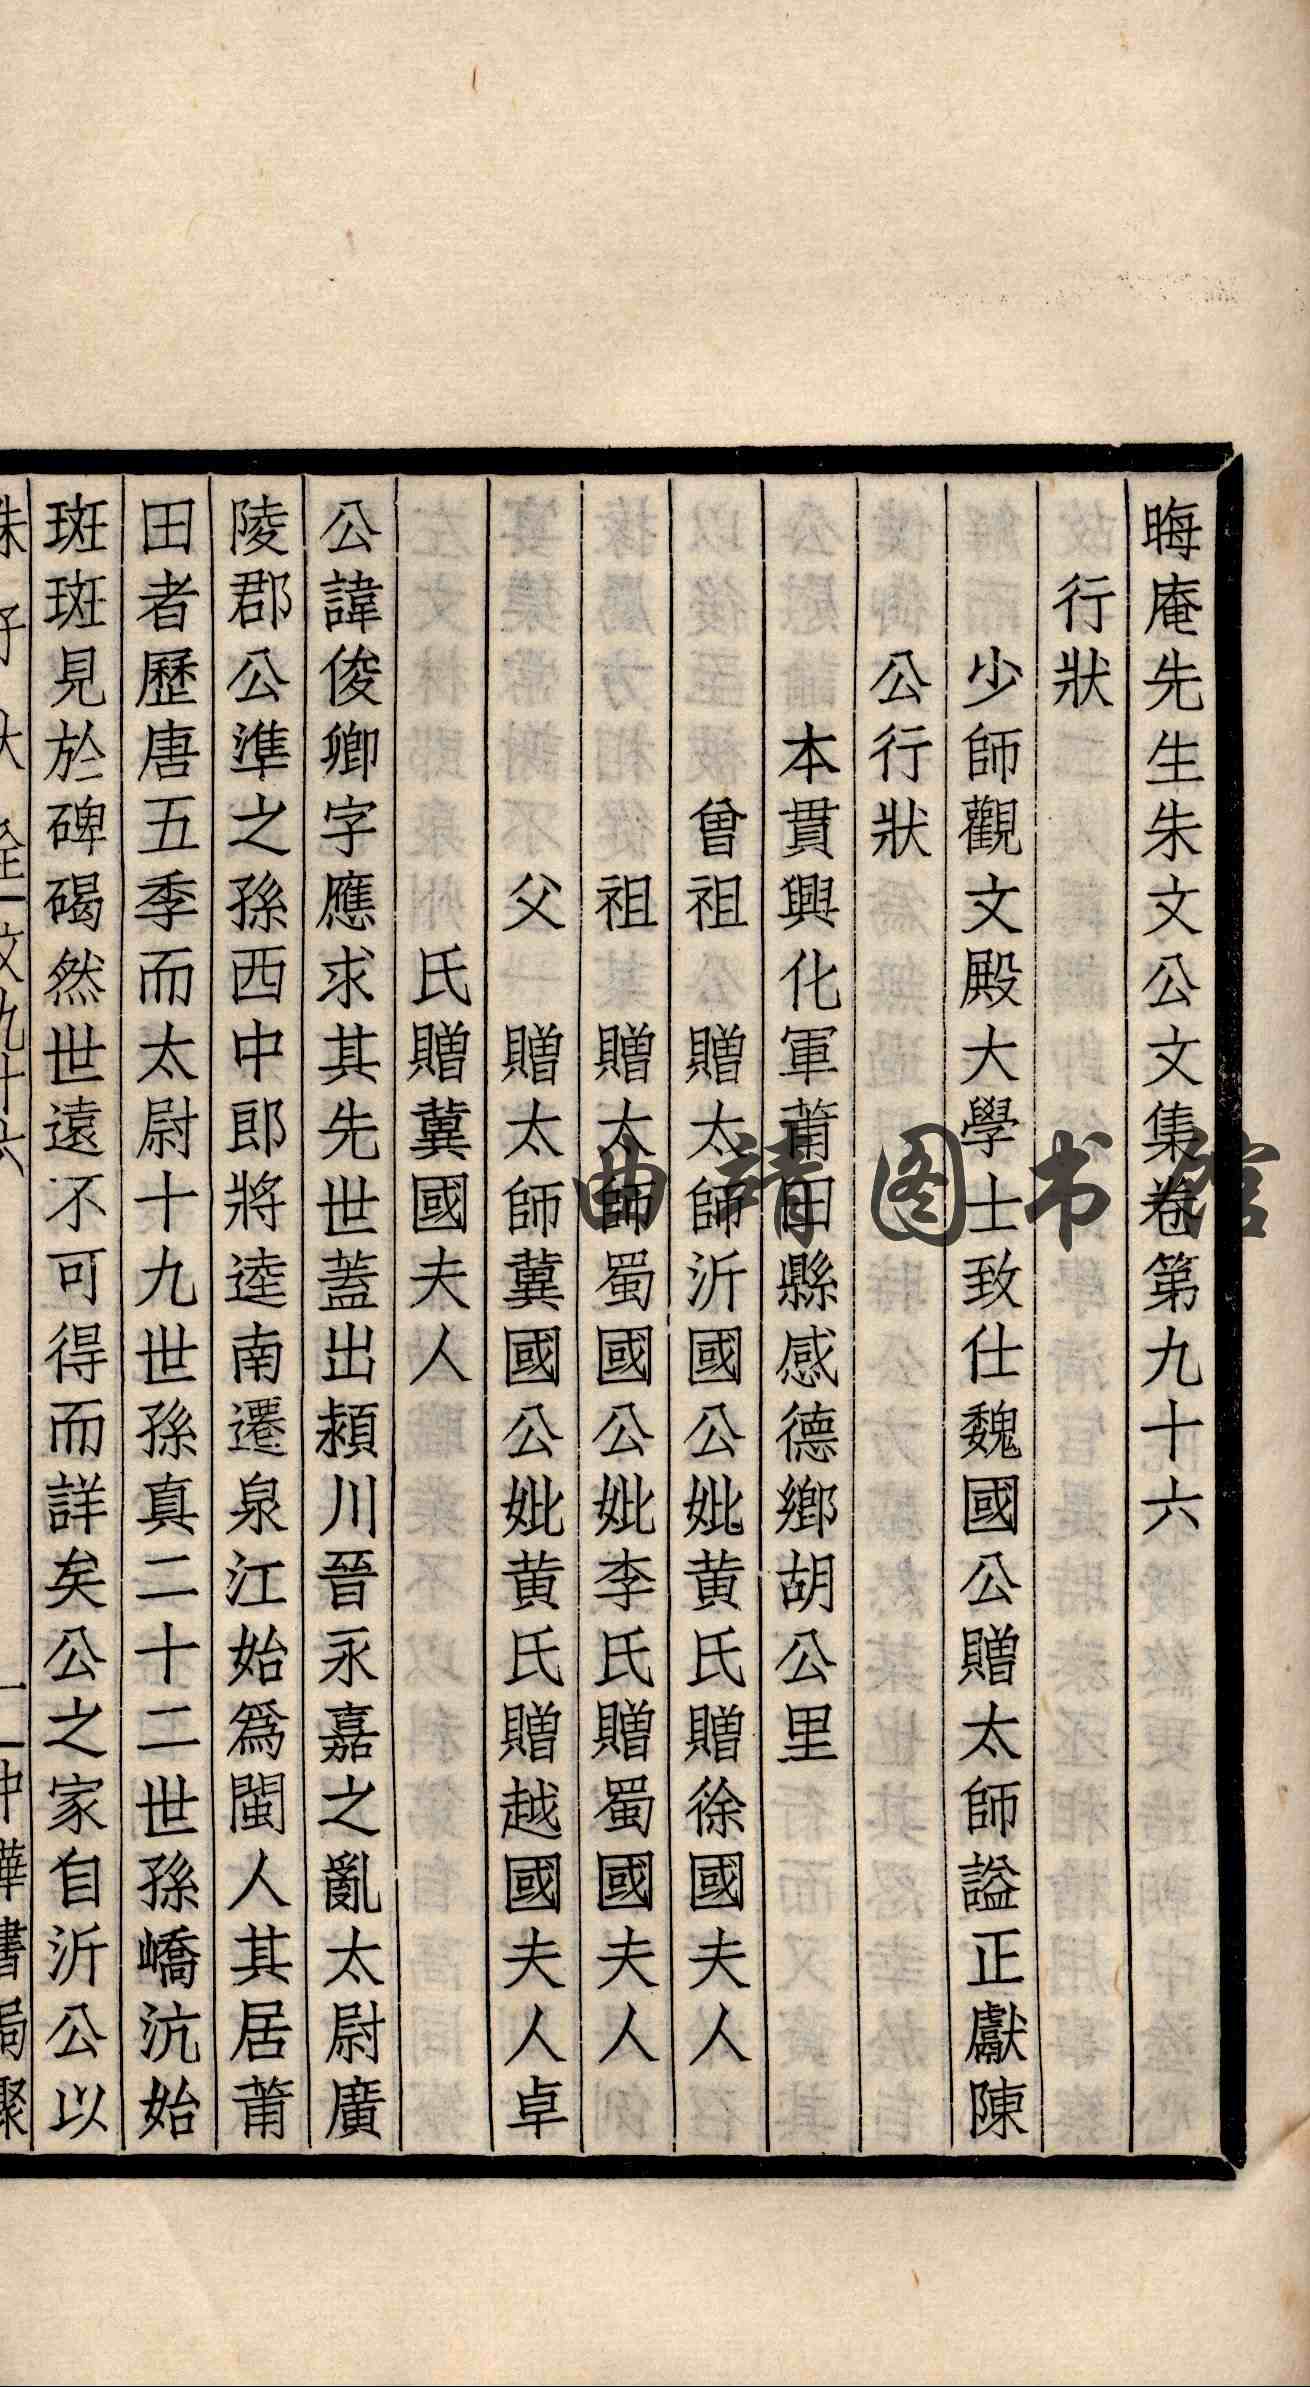 晦庵先生朱文公文集卷第九十六
行狀
少師觀文殿大學士致仕魏國公贈太師謚正獻陳
公行狀
本貫興化軍莆田縣感德鄉胡公里
曾祖 贈太師沂國公妣黄氏贈徐國夫人
祖 贈太師蜀國公妣李氏贈蜀國夫人
父 贈太師冀國公妣黄氏贈越國夫人卓
氏贈冀國夫人
公諱俊卿字應求其先世蓋出潁川晉永嘉之亂太尉廣
陵郡公準之孫西中郎將逵南遷泉江始爲閩人其居莆
田者歷唐五季而太尉十九世孫真二十二世孫嶠沆始
斑斑見於碑碣然世遠不可得而詳矣公之家自沂公以
朱子大全 文九十六 一 中華書局聚
曲靖图书馆